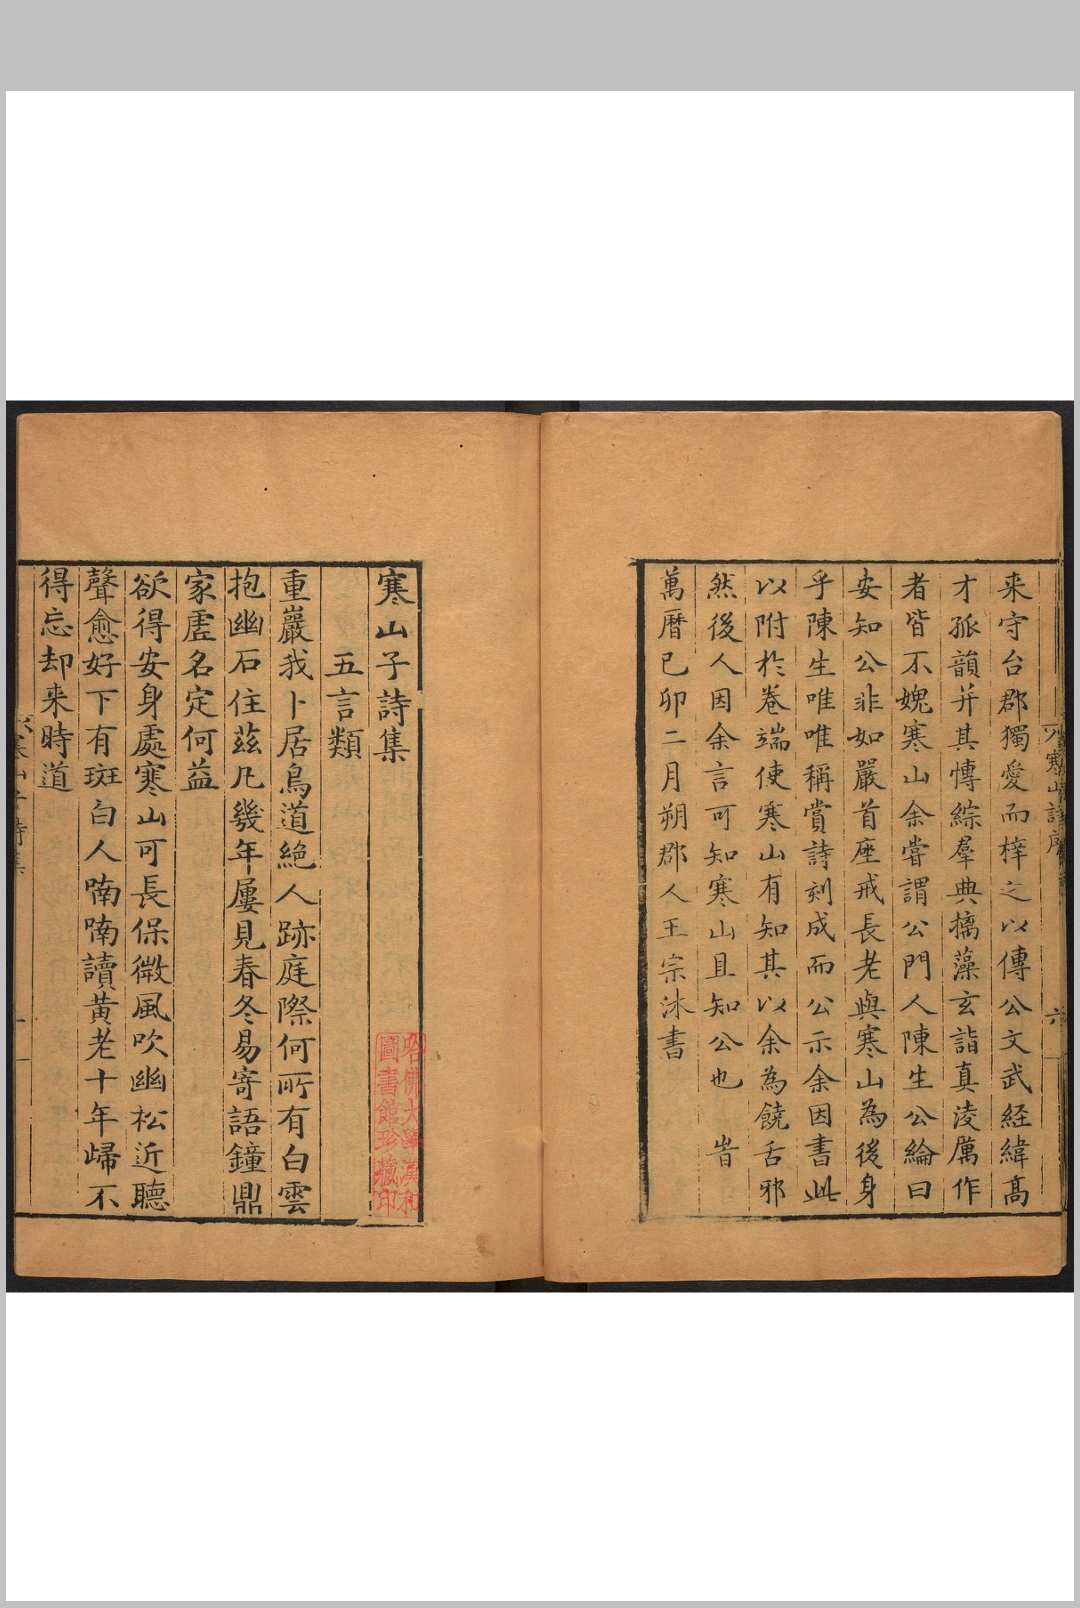 来守台郡獨愛而梓之以傳公文武經緯高
才孤韻并其愽綜羣典摛藻玄詣真淩厲作
者皆不媿寒山余嘗謂公門人陳生公綸曰
安知公非如嚴首座戒長老與寒山為後身
乎陳生唯唯稱賞詩刻成而公示余因書此
以附於卷端使寒山有知其以余為饒舌邪
然後人因余言可知寒山且知公也 旹
萬曆己卯二月朔郡人王宗沐書
寒山詩序
六
寒山子詩集
五言類
重巖我卜居鳥道絕人跡庭際何所有白雲
抱幽石住茲凡幾年屢見春冬易寄語鐘鼎
家虛名定何益
欲得安身處寒山可長保微風吹幽松近聽
聲愈好下有斑白人喃喃讀黃老十年歸不
得忘却来時道
寒山子詩集
一
哈佛大學漢和
圖書館珍藏印